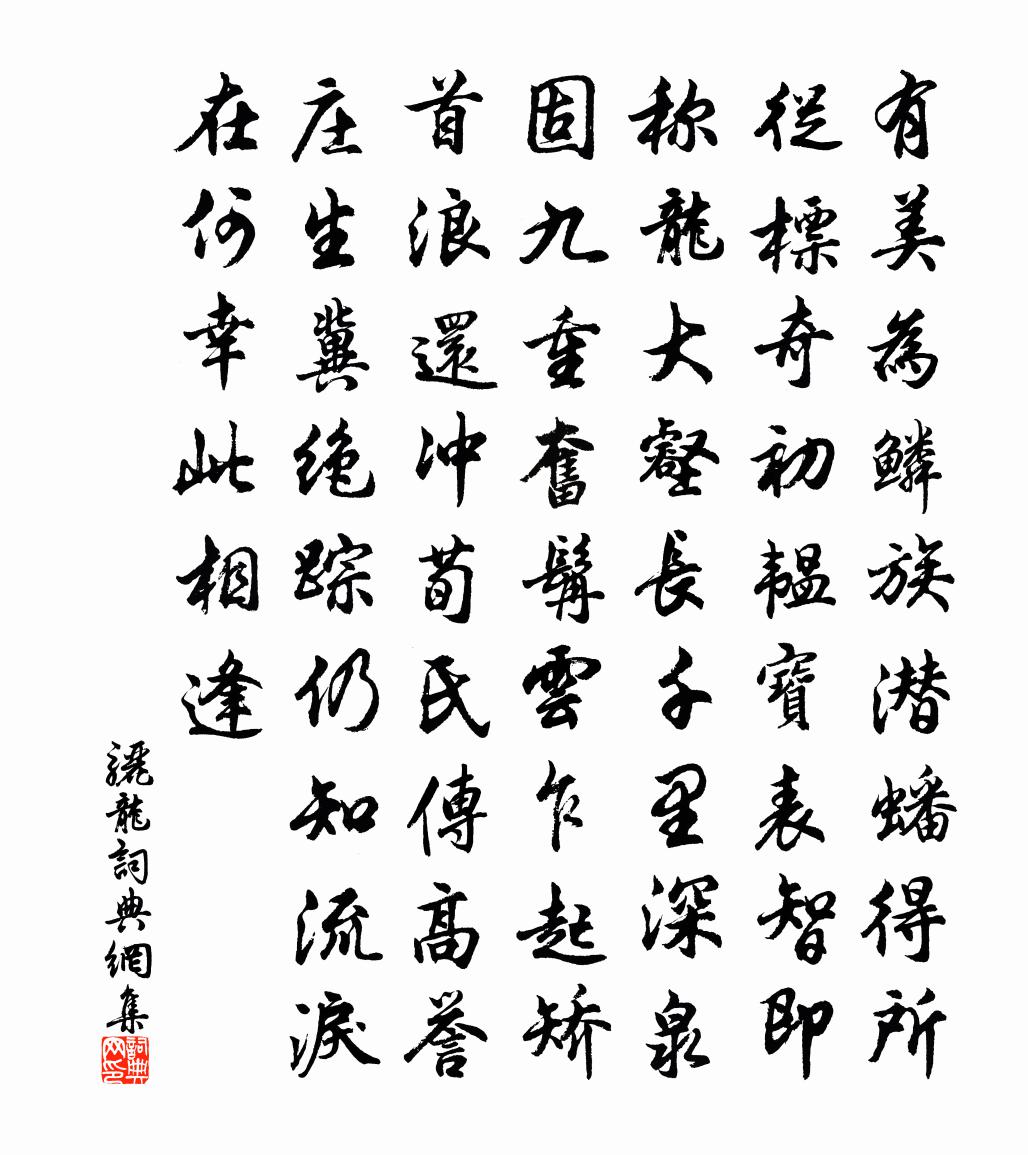 有美為鳞族潜蟠得所
從標奇初韫寶表智即
称龍大壑長千里深泉
固九重奮髯雲乍起矫
首浪還冲荀氏傳高誉
庄生冀绝踪仍知流淚
在何幸此相逢
骊龍詞典網集
詞典网印